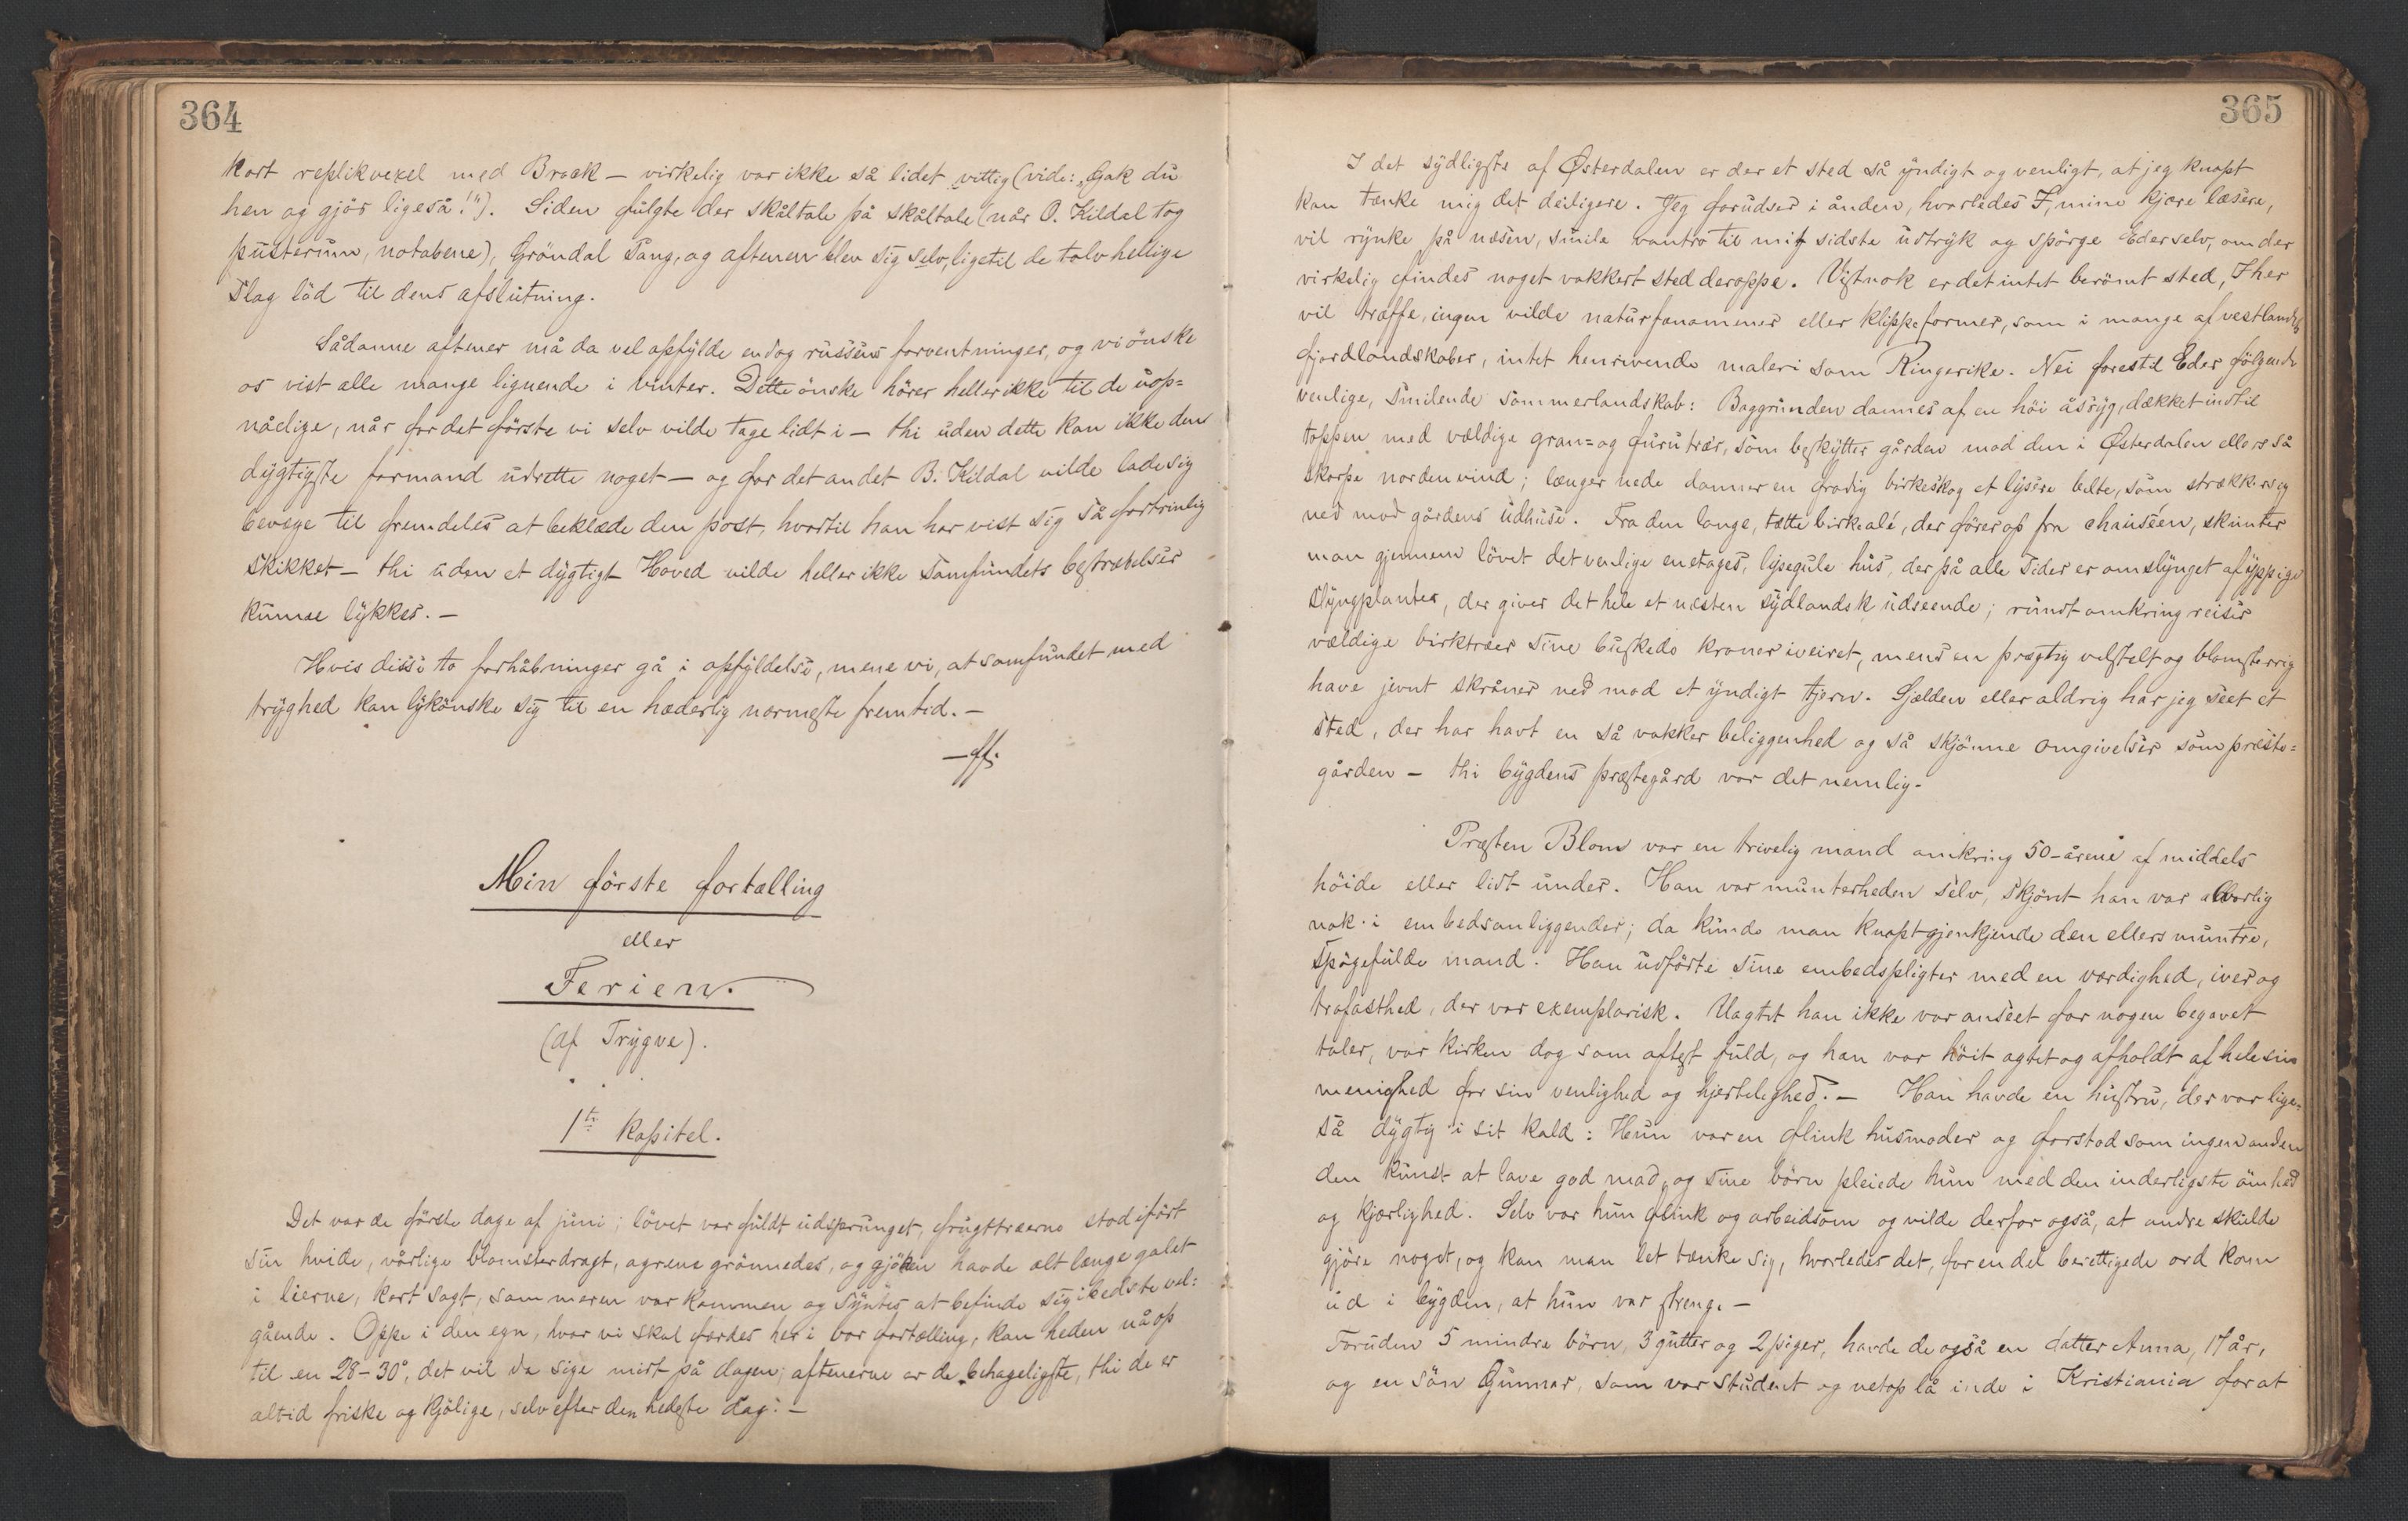 364
kort replikvexel med Brock – virkelig var ikke så lidet vittig (vide: „Gak du
hen og gjör ligeså!"). Siden fulgte der skåltale på skåltale (når O. Kildal tog
pusterum, notabene), Gröndal sang, og aftenen blev sig selv, ligetil de tolv hellige
slag löd til dens afslutning.
Sådanne aftener må da vel opfylde endog russens forventninger, og vi önske
os vist alle mange lignende i vinter. Dette önske hörer heller ikke til de uop=
nåelige, når for det förste vi selv vilde tage lidt i – thi uden dette kan ikke den
dygtigste formand udrette noget – og for det andet B. Kildal vilde lade sig
bevæge til fremdeles at beklæde den post, hvortil han har vist sig så fortrinlig
skikket – thi uden et dygtigt Hoved vilde heller ikke samfundets bestræbelser
kunne lykkes. –
Hvis disse to forhåbninger gå i opfyldelse, mene vi, at samfundet med
tryghed kan lykönske sig til en hæderlig nærmeste fremtid. –
– ff.
Min förste fortælling
eller
Ferien.
(af Trygve).
1te Kapitel.
Det var de förste dage af juni; lövet var fuldt udsprunget, frugttræerne stod iført
sin hvide, vårlige blomsterdragt, agrene grönnedes, og gjöken havde alt længe galet
i lierne, kort sagt, sommeren var kommen og syntes at befinde sig i bedste vel=
gående. Oppe i den egn, hvor vi skal færdes her i vor fortælling, kan heden nå op
til en 28–30°, det vil da sige midt på dagen; aftenerne er de behageligste, thi de er
altid friske og kjölige, selv efter den hedeste dag. –
365
I det sydligste af Østerdalen er der et sted så yndigt og venligt, at jeg knapt
kan tænke mig det deiligere. Jeg forudser i ånden, hvorledes I, mine kjære læsere,
vil rynke på næsen, smile vantro til mit sidste udtryk og spörge Eder selv, om der
virkelig findes noget vakkert sted deroppe. Vistnok er det intet berömt sted, I her
vil træffe, ingen vilde naturfænomener eller klippeformer, som i mange af vestlandets
fjordlandskaber, intet henrivende maleri som Ringerike. Nei forestil Eder fölgende
venlige, smilende sommerlandskab: Baggrunden dannes af en höi åsryg, dækket indtil
toppen med vældige gran= og furutrær, som beskytter gården mod den i Østerdalen ellers så
skarpe nordenvind; længer nede danner en frodig birkeskog et lysere belte, som strækker sig
ned mod gårdens udhuse. Fra den lange, tætte birkealé, der förer op fra chauséen, skimter
man gjennem lövet det venlige enetages, lysegule hus, der på alle sider er omslynget af yppige
slyngplanter, der giver det hele et næsten sydlandsk udseende; rundt omkring reiser
vældige birktræer sine buskede kroner iveiret, mens en prægtig velstelt og blomsterrig
have jevnt skråner ned mod et yndigt tjern. Sjælden eller aldrig har jeg seet et
sted, der har havt en så vakker beliggenhed og så skjönne omgivelser som præste=
gården – thi bygdens præstegård var det nemlig.
Præsten Blom var en trivelig mand omkring 50-årene af middels
höide eller lidt under. Han var munterheden selv, skjönt han var alvorlig
nok i embedsanliggender; da kunde man knapt gjenkjende den ellers muntre,
spögefulde mand. Han udförte sine embedspligter med en værdighed, iver og
trofasthed, der var exemplarisk. Uagtet han ikke var anseet for nogen begavet
taler, var kirken dog som oftest fuld, og han var höit agtet og afholdt af hele sin
menighed for sin venlighed og hjertelighed. – Han havde en hustru, der var lige=
så dygtig i sit kald: Hun var en flink husmoder og forstod som ingen anden
den kunst at lave god mad, og sine börn pleiede hun med den inderligste ömhed
og kjærlighed. Selv var hun flink og arbeidsom og vilde derfor også, at andre skulde
gjöre noget, og kan man let tænke sig, hvorledes det, for en del berettigede ord kom
ud i bygden, at hun var streng. –
Foruden 5 mindre börn, 3 gutter og 2 piger, havde de også en datter Anna, 17 år,
og en sön Gunnar, som var student og netop lå inde i Kristiania for at